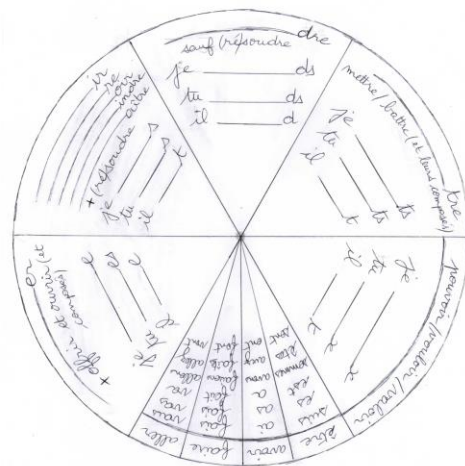 dre
sauf (résoudre
je ds
tu ds
il d
tre
mettre/battre (et leurs composés)
je ts
tu ts
il t
pouvoir/vouloir/valoir
je x
tu x
il t
être
suis
es
est
sommes
êtes
sont
avoir
ai
as
a
avons
avez
ont
faire
fais
fais
fait
font
aller
vais
vas
va
allons
allez
vont
er
+ offrir et ouvrir (et
composés)
je e
tu es
il e
ir
re
oir
indre
aître
+ (résoudre
je s
tu s
il t